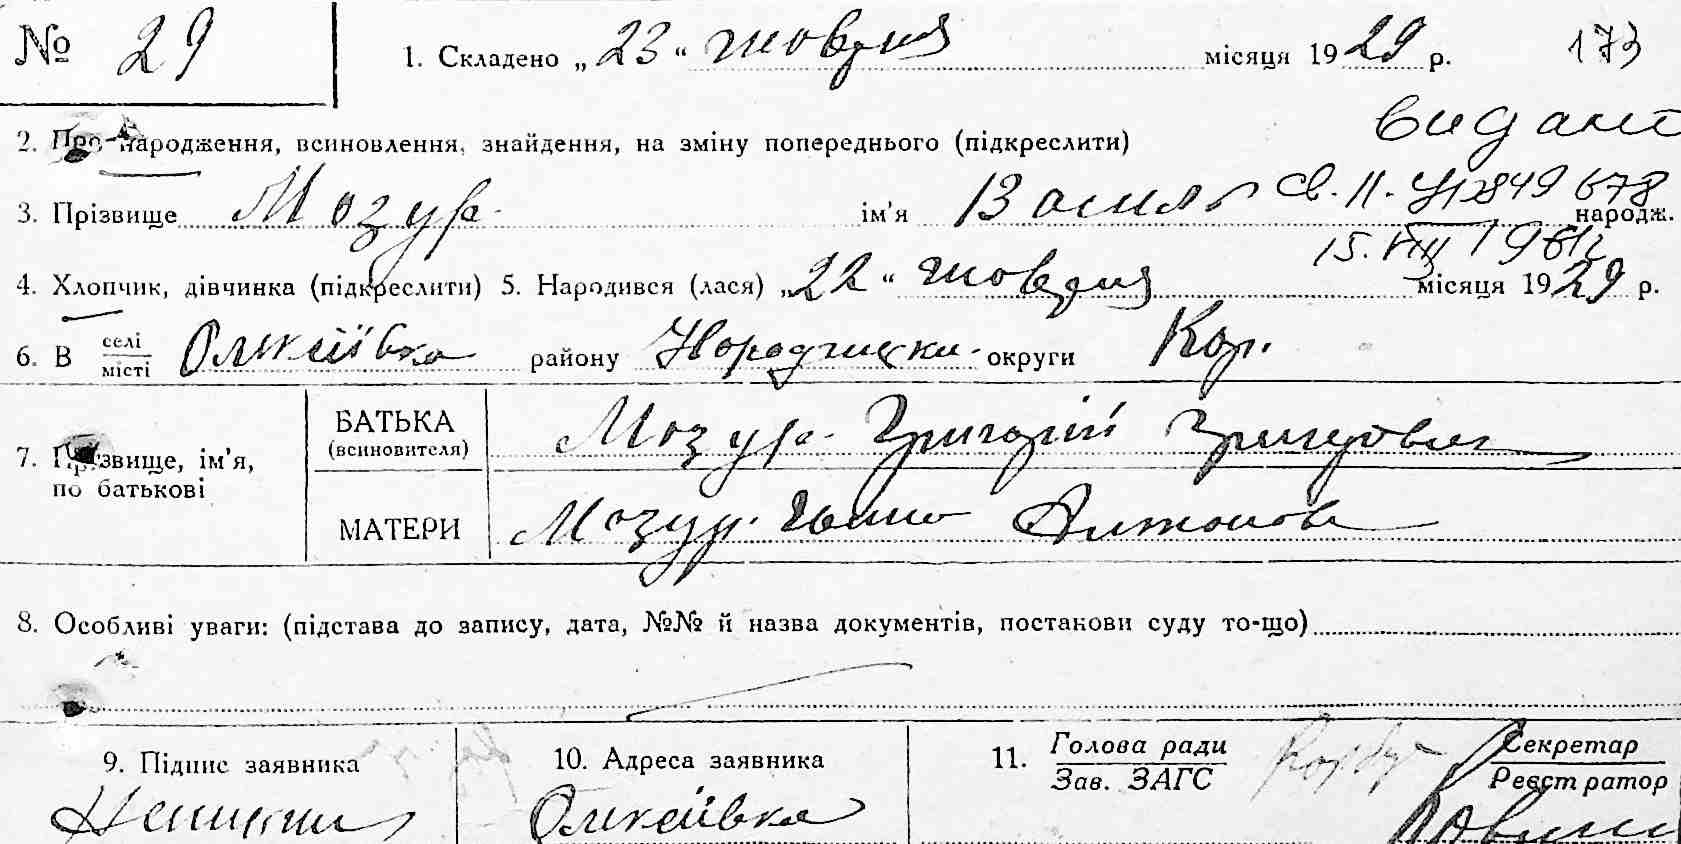 № 29 1. Складено „23“ жовтня місяця 1929 р. 173
видане
2. Про народження, всиновлення, знайдення, на зміну попереднього (підкреслити)
св. П.
3. Прізвище Мозур. ім'я Василь народж.
15. VIII 1961
4. Хлопчик, дівчинка (підкреслити) 5. Народився (лася) „22“ жовтня місяця 1929 р.
6. В селі місті Олексіївка району Народицьки. округи Кор.
7. Прізвище, ім'я, по батькові
БАТЬКА (всиновителя) Мозур. Григорій Григорович
МАТЕРИ Мозур. Ганна Антонова
8. Особливі уваги: (підстава до запису, дата, №№ й назва документів, постакови суду то-що)
9. Підпис заявника 10. Адреса заявника 11. Голова ради Зав. ЗАГС Секретар Реєстратор
Олексіївка